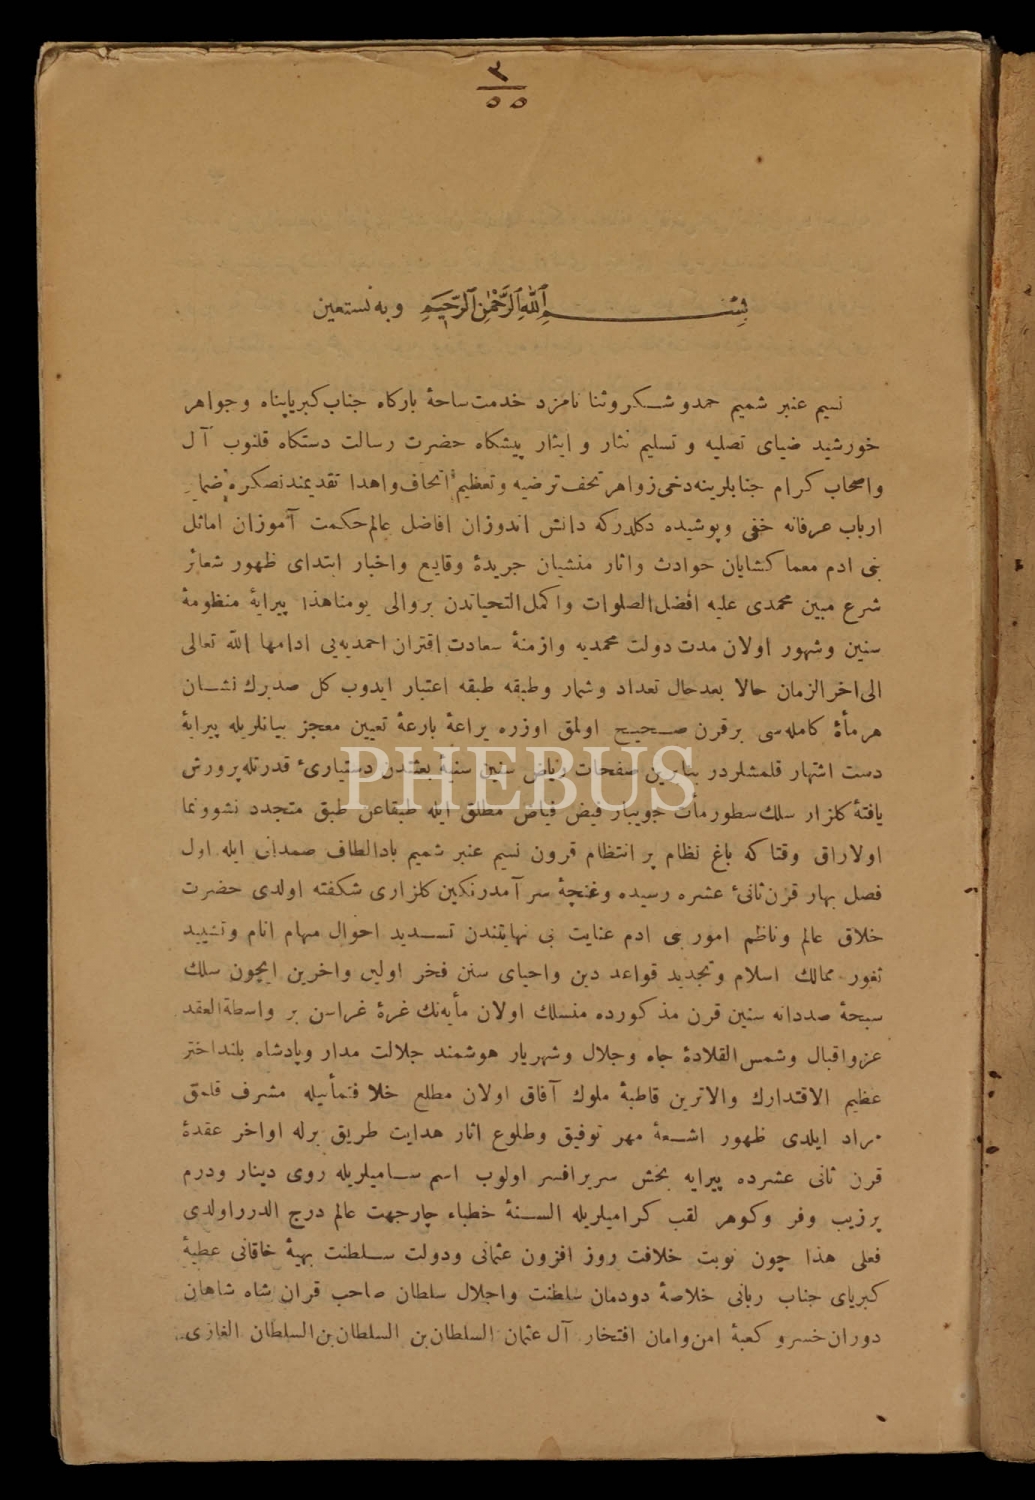 ٣
٥٥
بسم الله الرحمن الرحيم وبه نستعين
نسيم عنبر شميم حمدو شكر وثنا نامزد خدمت ساحۀ باركاه جناب كبرياپناه وجواهر
خورشيد ضياى تصليه و تسليم نثار و ايثار پيشكاه حضرت رسالت دستكاه قلنوب آل
واصحاب كرام جنابلرينه دخى زواهر تحف ترضيه وتعظيم اتحاف واهدا تقديمندنصكره ضماير
ارباب عرفانه خفى وپوشيده دكلدركه دانش اندوزان افاضل عالم حكمت آموزان اماثل
بنى ادم معما كشايان حوادث واثار منشيان جريدۀ وقايع واخبار ابتداى ظهور شعائر
شرع مبين محمدى عليه افضل الصلوات واكمل التحياتدن بروالى يومناهذا پيرايۀ منظومۀ
سنين وشهور اولان مدت دولت محمديه وازمنۀ سعادت اقتران احمديه يى ادامها الله تعالى
الى اخر الزمان حالا بعدحال تعداد وشمار وطبقه طبقه اعتبار ايدوب كل صدبرك نشان
هرمأۀ كامله سى برقرن صحيح اولمق اوزره يراعۀ بارعۀ تعيين معجز بيانلريله پيرايۀ
دست اشتهار قلمشلردر بنابرين صفحات رياض سنين سنيۀ بعثتدن دستيارئ قدرتله پرورش
يافتۀ كلزار سلك سطور مأت جويبار فيض فياض مطلق ايله طبقاعن طبق متجدد نشوونما
اولاراق وقتا كه باغ نظام پر انتظام قرون نسيم عنبر شميم بادالطاف صمدانى ايله اول
فصل بهار قرن ثانئ عشره رسيده وغنچۀ سر آمدرنكين كلزارى شكفته اولدى حضرت
خلاق عالم وناظم امور بنى ادم عنايت بى نهايتندن تسديد احوال مهام انام وتشييد
ثغور ممالك اسلام وتجديد قواعد دين واحياى سنن فخر اولين واخرين ايچون سلك
سبحۀ صددانه سنين قرن مذكورده منسلك اولان مأيه نك غرۀ غراسن بر واسطةالعقد
عزواقبال وشمس القلادۀ جاه وجلال وشهريار هوشمند جلالت مدار وپادشاه بلنداختر
عظيم الاقتدارك والاترين قاطبۀ ملوك آفاق اولان مطلع خلافتمأبيله مشرف قلمق
مراد ايلدى ظهور اشعۀ مهر توفيق وطلوع اثار هدايت طريق برله اواخر عقدۀ
قرن ثانى عشرده پيرايه بخش سريرافسر اولوب اسم ساميلريله روى دينار ودرم
پرزيب وفر وكوهر لقب كراميلريله السنۀ خطباء چارجهت عالم درج الدرراولدى
فعلى هذا چون نوبت خلافت روز افزون عثمانى ودولت سلطنت بهيۀ خاقانى عطيۀ
كبرياى جناب ربانى خلاصۀ دودمان سلطنت واجلال سلطان صاحب قران شاه شاهان
دوران خسرو كعبۀ امن وامان افتخار آل عثمان السلطان بن السلطان بن السلطان الغازى
PHEBUS